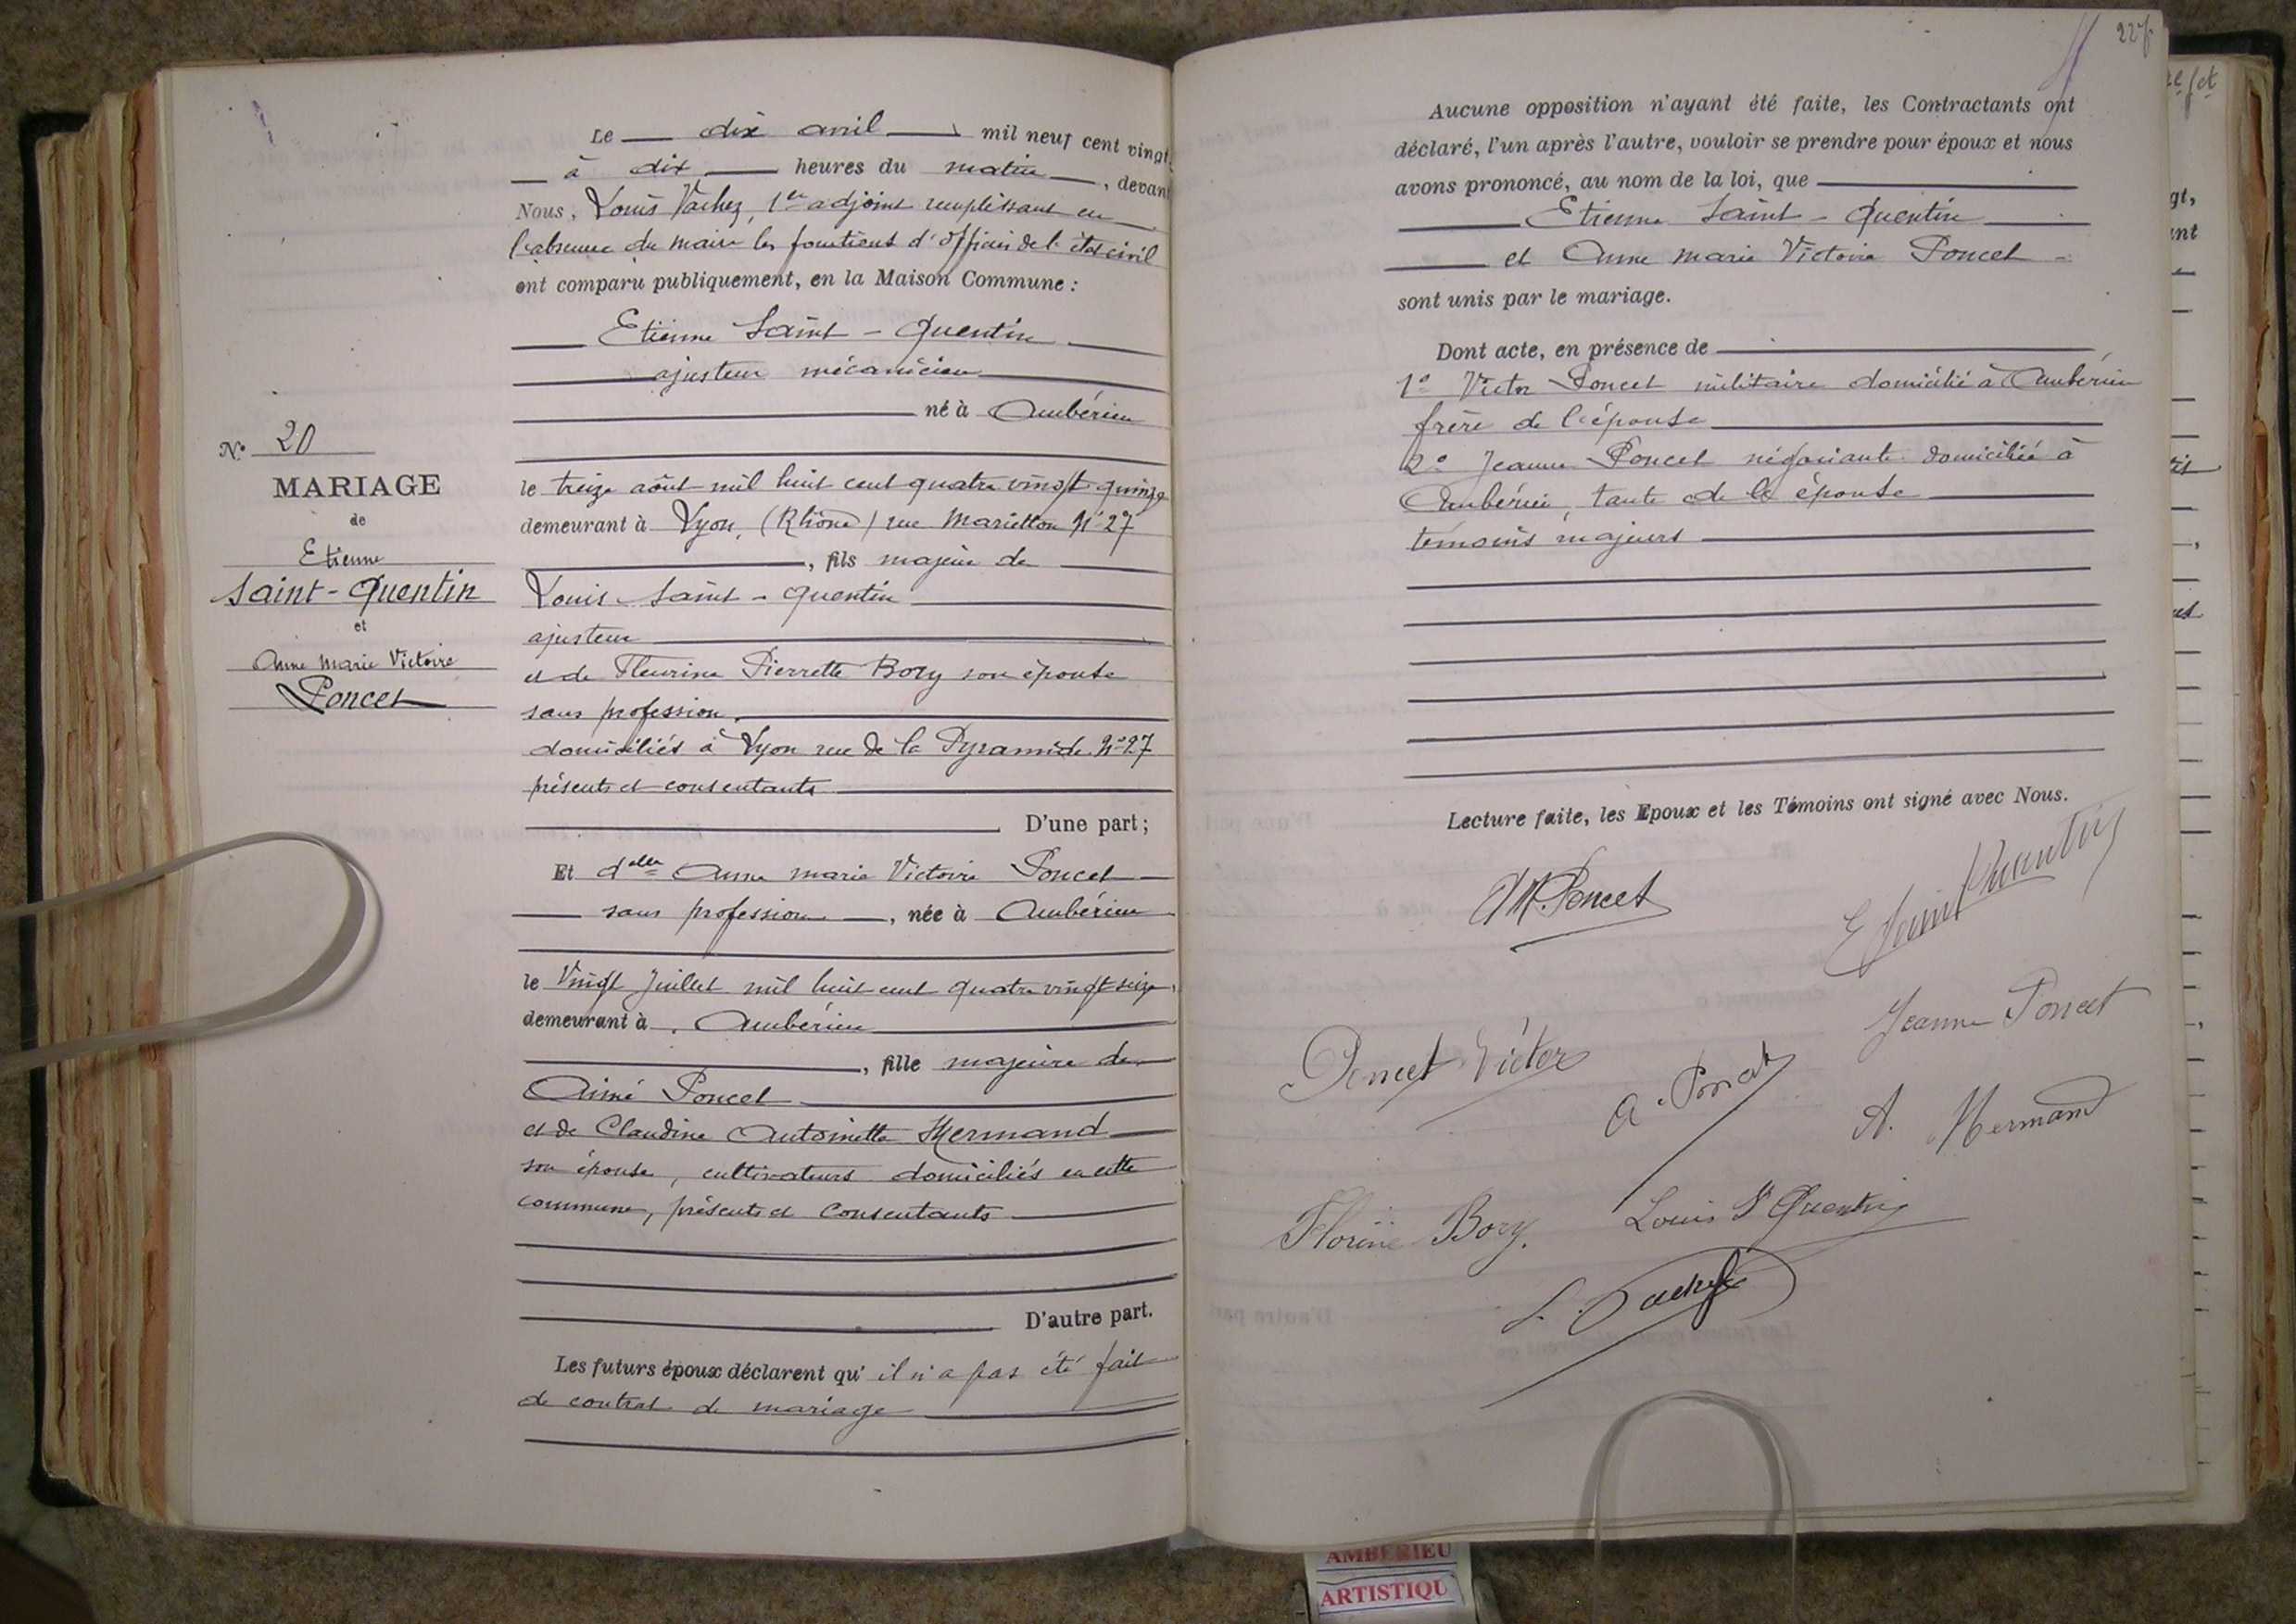 Le dix avril mil neuf cent vingt,
à dix heures du matin, devant
Nous, Louis Vachez, 1er adjoint remplissant en
l'absence du maire les fonctions d'officier de l'état civil
ont comparu publiquement, en la Maison Commune :
Etienne Saint-Quentin
ajusteur mécanicien
né à Ambérieu
N° 20
MARIAGE
de
Etienne
Saint-Quentin
et
Anne Marie Victoire
Poncet
le treize août mil huit cent quatre vingt quinze
demeurant à Lyon, (Rhône) rue Marietton N° 27
, fils majeur de
Louis Saint-Quentin
ajusteur
et de Fleurine Pierrette Bory son épouse
sans profession,
domiciliés à Lyon rue de la Pyramide N° 27
présents et consentants
D'une part ;
Et delle Anne Marie Victoire Poncet
sans profession, née à Ambérieu
le Vingt Juillet mil huit cent quatre vingt seize,
demeurant à Ambérieu
, fille majeure de
Aimé Poncet
et de Claudine Antoinette Hermand
son épouse, cultivateurs domiciliés en cette
commune, présents et consentants
D'autre part.
Les futurs époux déclarent qu'il n'a pas été fait
de contrat de mariage
227
Aucune opposition n'ayant été faite, les Contractants ont
déclaré, l'un après l'autre, vouloir se prendre pour époux et nous
avons prononcé, au nom de la loi, que
Etienne Saint-Quentin
et Anne Marie Victoire Poncet
sont unis par le mariage.
Dont acte, en présence de
1° Victor Poncet militaire domicilié à Ambérieu
frère de l'épouse
2° Jeanne Poncet négociante domiciliée à
Ambérieu, tante de l'épouse
témoins majeurs
Lecture faite, les Epoux et les Témoins ont signé avec Nous.
AM. Poncet
E Saint Quentin
Jeanne Poncet
Poncet Victor
A. Poncet
A. Hermand
Florine Bory.
Louis St Quentin
L. Vachez
AMBERIEU
ARTISTIQU